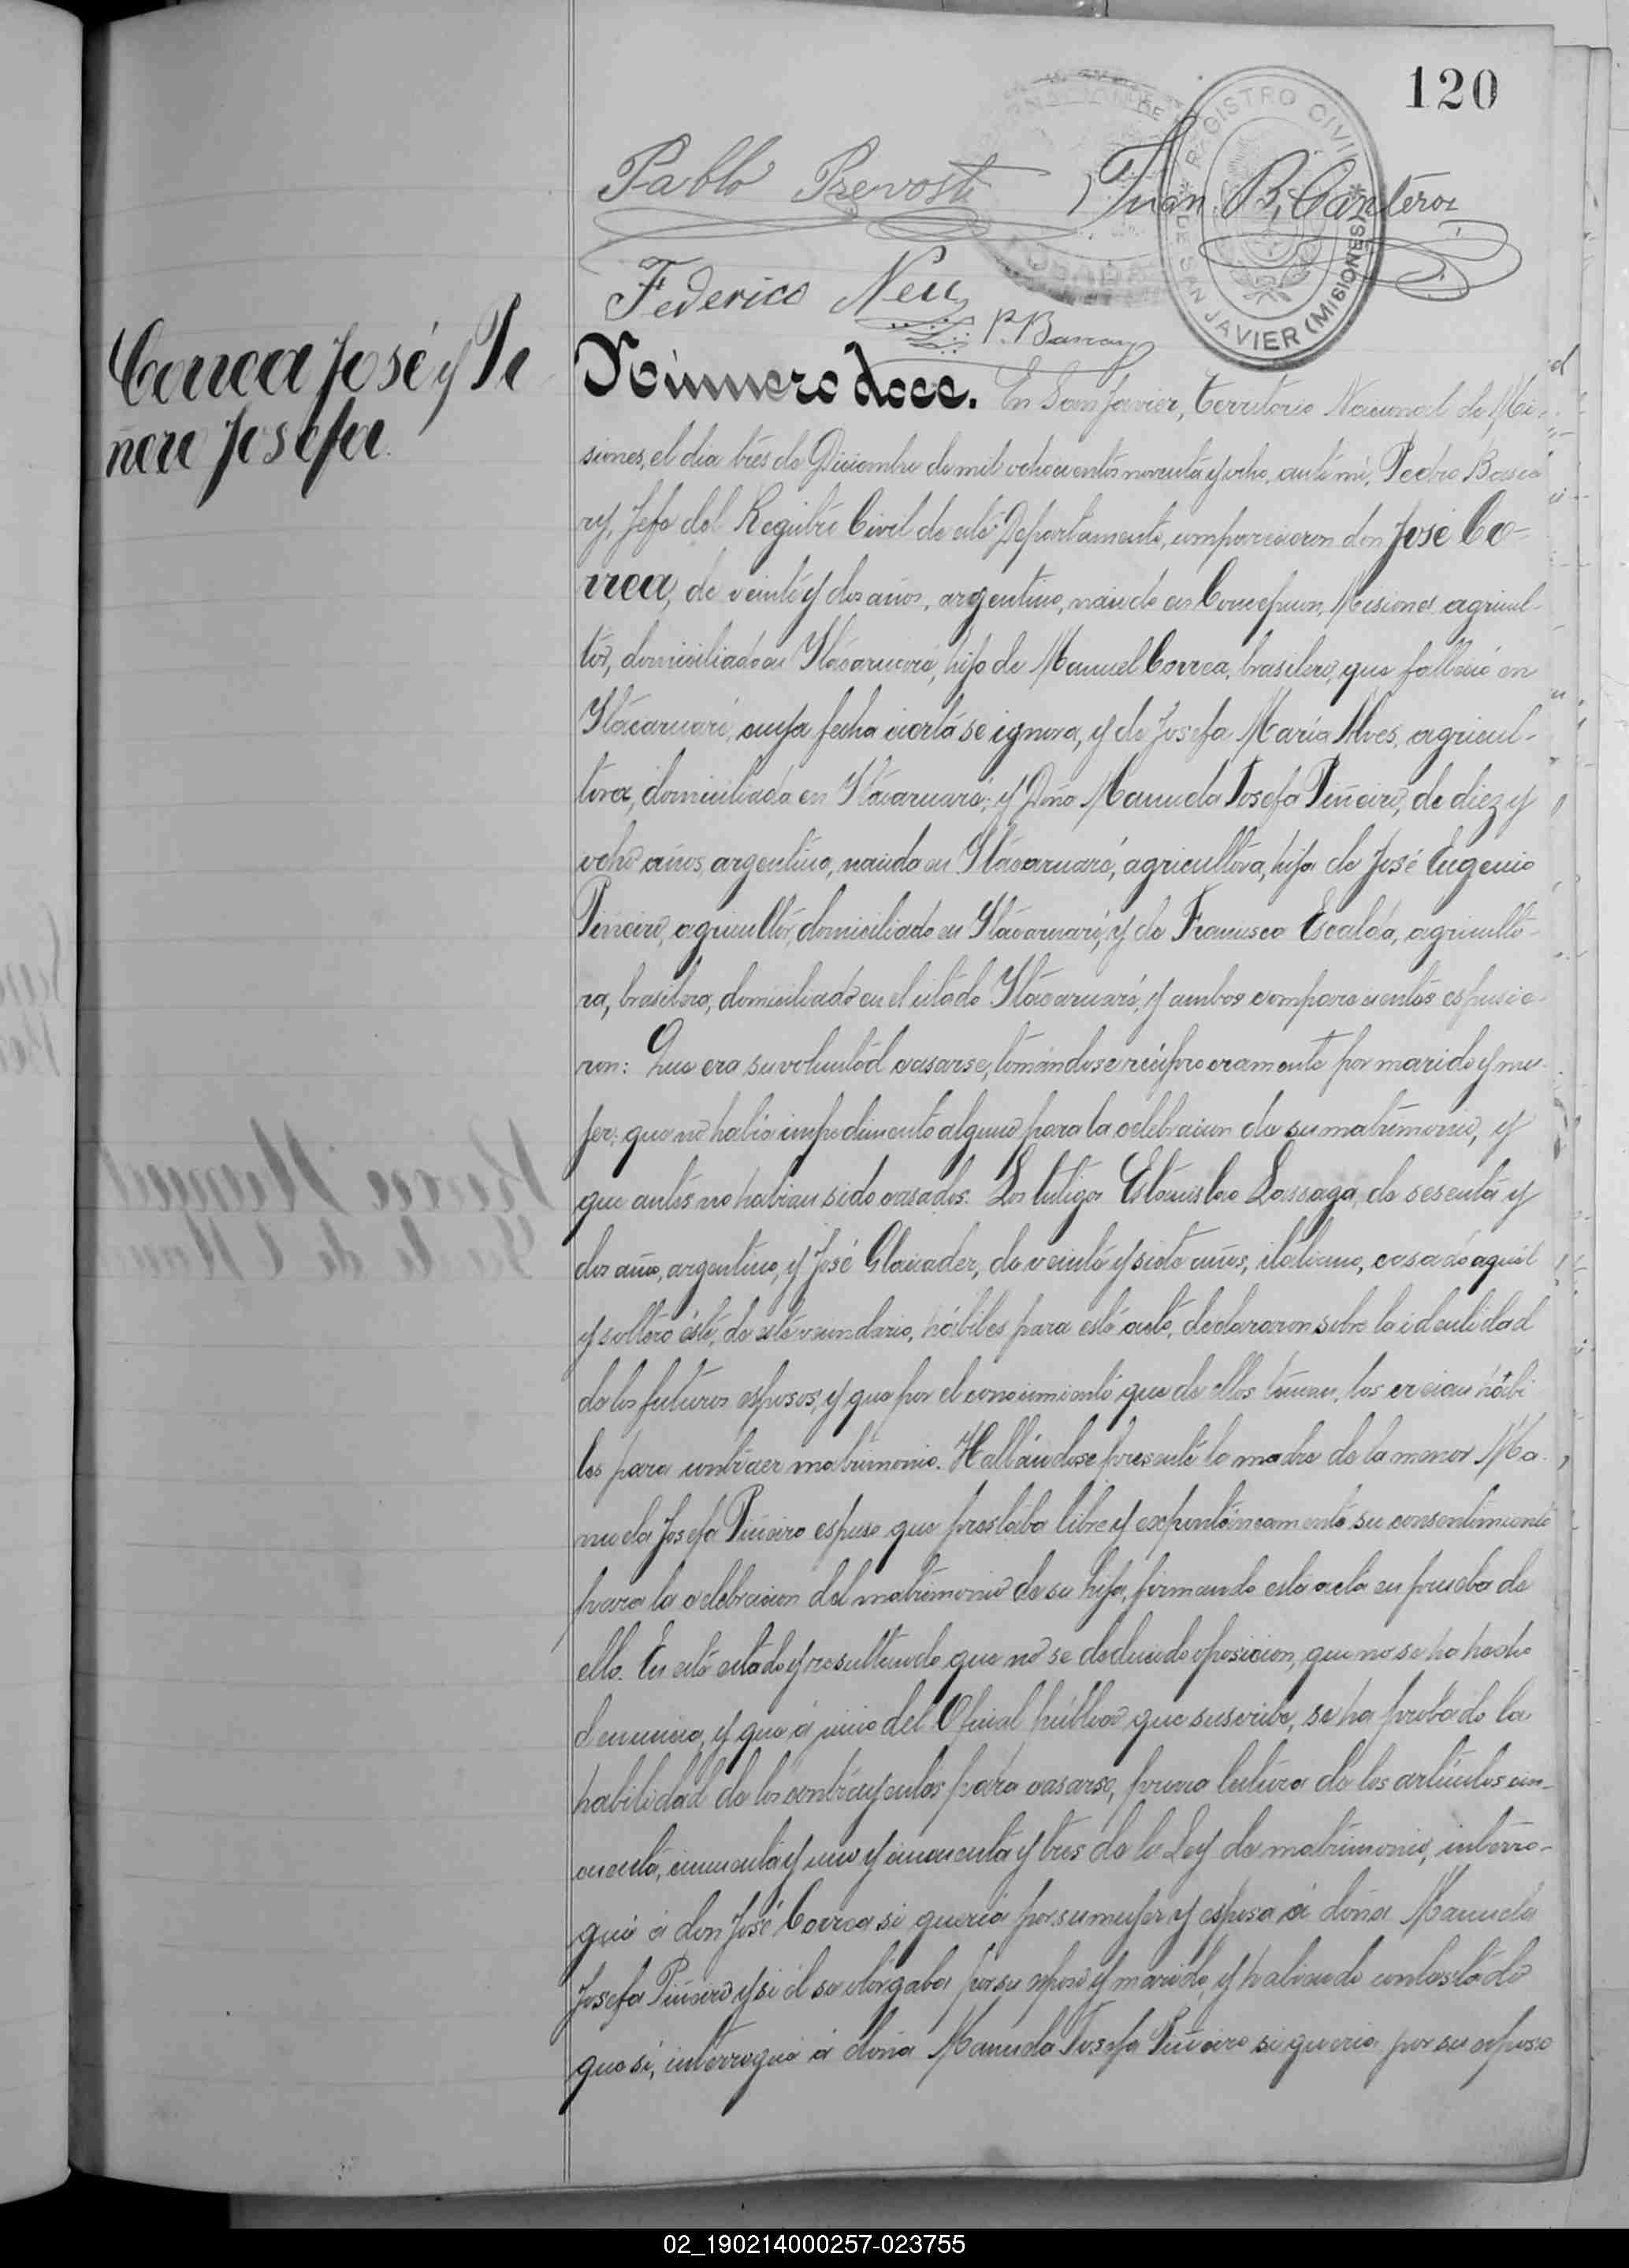 120
REGISTRO CIVIL
DE SAN JAVIER (MISIONES)
Pablo Prevosti Juan B. Canteros
Federico Neu
Correa José y Pi
ñero Josefa.
Número doce. En San Javier, Territorio Nacional de Mi-
siones, el dia tres de Diciembre de mil ochocientos noventa y ocho, ante mi, Pedro
ry, Jefe del Registro Civil de este Departamento, comparecieron don José Co-
rrea, de veinte y dos años, argentino, nacido en Concepcion, Misiones, agricul-
tor, domiciliado en Itacaruaré, hijo de Manuel Correa, brasilero, que falleció en
Itacaruaré, cuya fecha cierta se ignora, y de Josefa María Alves, agricul-
tora, domiciliada en Itacaruaré; y Doña Manuela Josefa Piñeiro, de diez y
ocho años, argentina, nacida en Itacaruaré, agricultora, hija de José Eugenio
Piñeiro, agricultor, domiciliado en Itacaruaré, y de Francisca Escalda, agriculto-
ra, brasilera, domiciliada en el citado Itacaruaré, y ambos comparecientes espusie-
ron: Que era su voluntad casarse, tomándose recíprocamente por marido y mu-
jer; que no habia impedimento alguno para la celebracion de su matrimonio, y
que antes no habian sido casados. Los testigos Estanislao Lassaga, de sesenta y
dos años, argentino, y José Glavader, de veinte y siete años, italiano, casado aquel
y soltero éste, de este vecindario, hábiles para este acto, declararon sobre la identidad
de los futuros esposos, y que por el conocimiento que de ellos tienen, los creian hábi
les para contraer matrimonio. Hallándose presente la madre de la menor Ma-
nuela Josefa Piñeiro espuso que prestaba libre y expontáneamente su consentimiento
para la celebracion del matrimonio de su hija, firmando esta acta en prueba de
ello. En este estado y resultando que no se deduce oposicion, que no se ha hecho
denuncia, y que á juicio del Oficial público que suscribe, se ha probado la
habilidad de los contrayentes para casarse, previa lectura de los artículos cin-
cuenta, cincuenta y uno y cincuenta y tres de la Ley de matrimonio, interro-
gué á don José Correa si queria por su mujer y esposa á doña Manuela
Josefa Piñeiro y si él se otorgaba por su esposo y marido, y habiendo contestado
que si, interrogué á doña Manuela Josefa Piñeiro si queria por su esposo
02_190214000257-023755